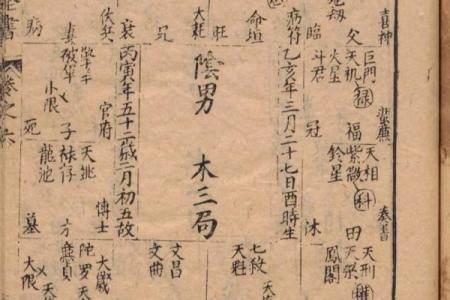 喜神
巨門
天機祿
火星
父
斗君
臨
病符
冠
蜚廉
天相
紫微科
鈴星
福
沐
奏書
天刑
天梁
鳳閣
田
命垣
旺
大耗
兄
衰
伏兵
病
乙亥年三月二十七日酉時生
陰男
木三局
丙寅年五十二歲二月初五故
擎羊
破軍
妻
小限
官府
死
天姚
祿存
子
龍池
博士
墓
大歲
陀羅
廉貞
大限
文昌
文曲
七殺
天魁